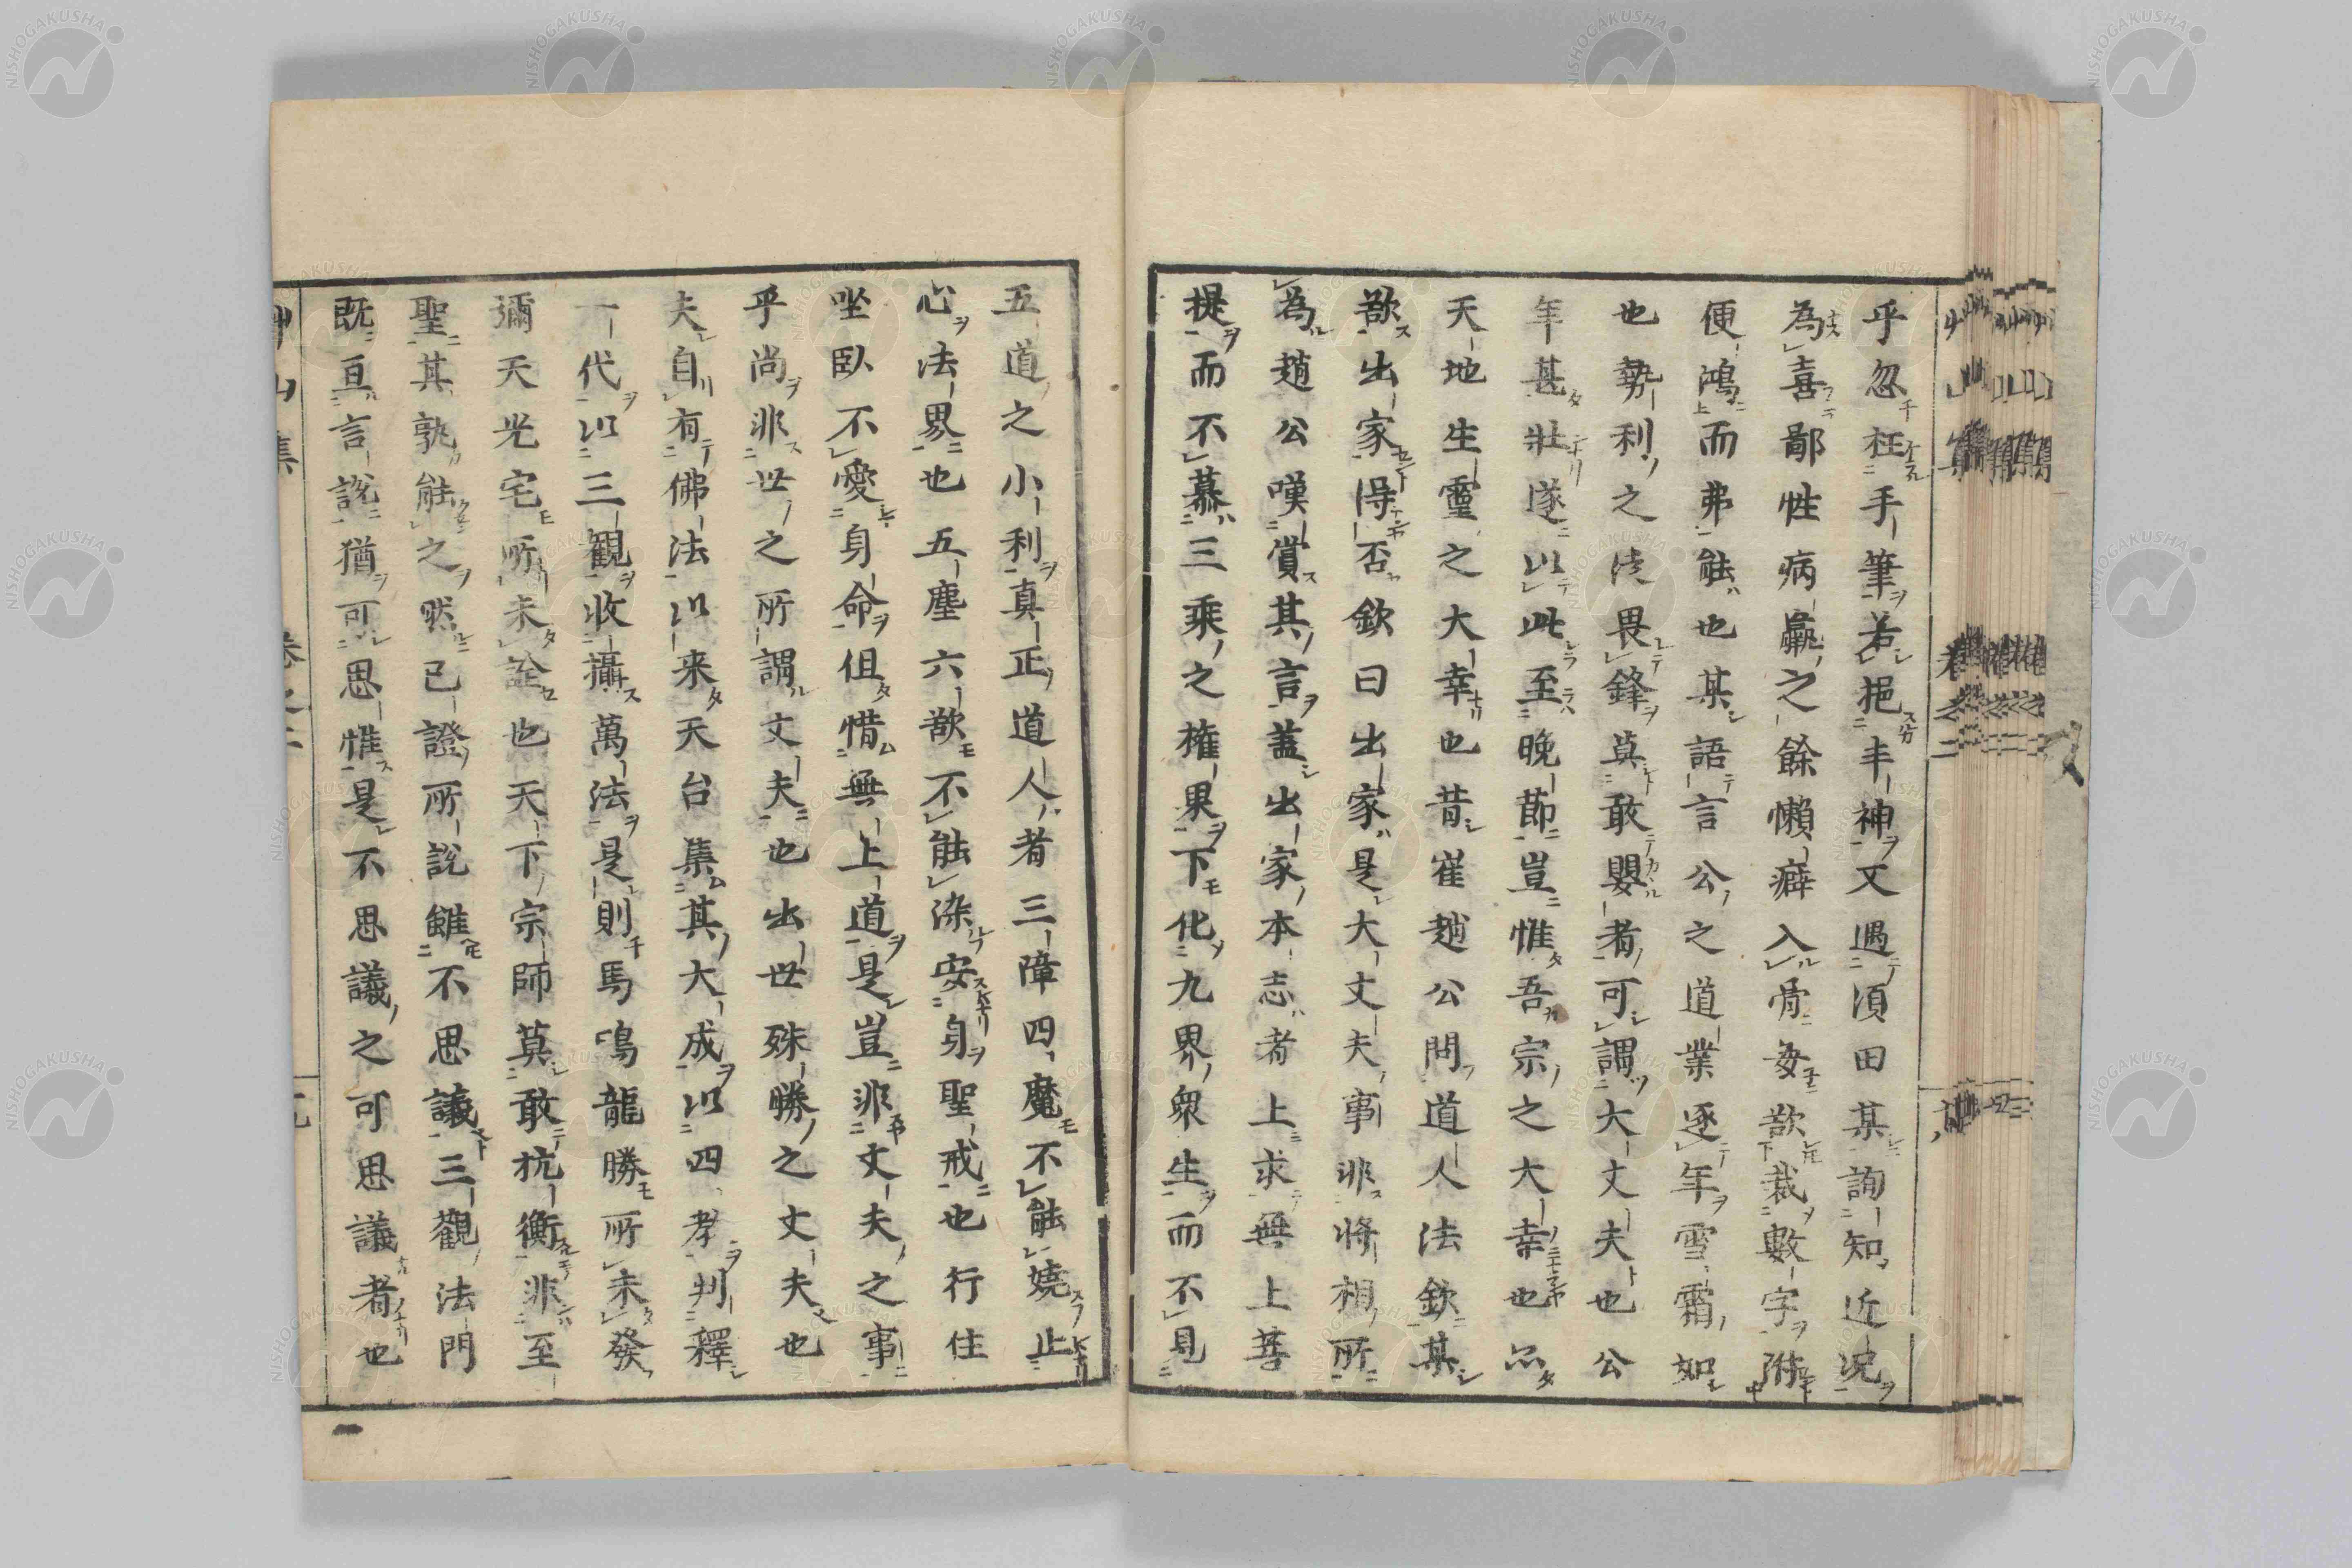 乎忽枉手筆若挹丰神又遇須田某詢知近况
為喜鄙性病羸之餘懶癖入骨每欲裁數字附
便鴻而弗能也某語言公之道業逐年雪霜如
也勢利之徒畏鋒莫敢嬰者可謂大丈夫也公
年甚壯遂以此至晚節豈惟吾宗之大幸也亦
天地生靈之大幸也昔崔趙公問道人法欽某
欲出家得否欽曰出家是大丈夫事非將相所
為趙公嘆賞其言蓋出家本志者上求無上菩
提而不慕三乘之權果下化九界衆生而不見
五道之小利真正道人者三障四魔不能嬈止
心法界也五塵六欲不能染安身聖戒也行住
坐臥不愛身命但惜無上道是豈非丈夫之事
乎尚非世之所謂丈夫也出世殊勝之丈夫也
夫自有佛法以来天台集其大成以四孝判釋
一代以三觀收攝萬法是則馬鳴龍勝所未發
彌天光宅所未詮也天下宗師莫敢抗衡非至
聖其孰能之然已證所說雖不思議三觀法門
既亘言說猶可思惟是不思議之可思議者也
山集
卷之二
卷之二
NISHOGAKUSHA